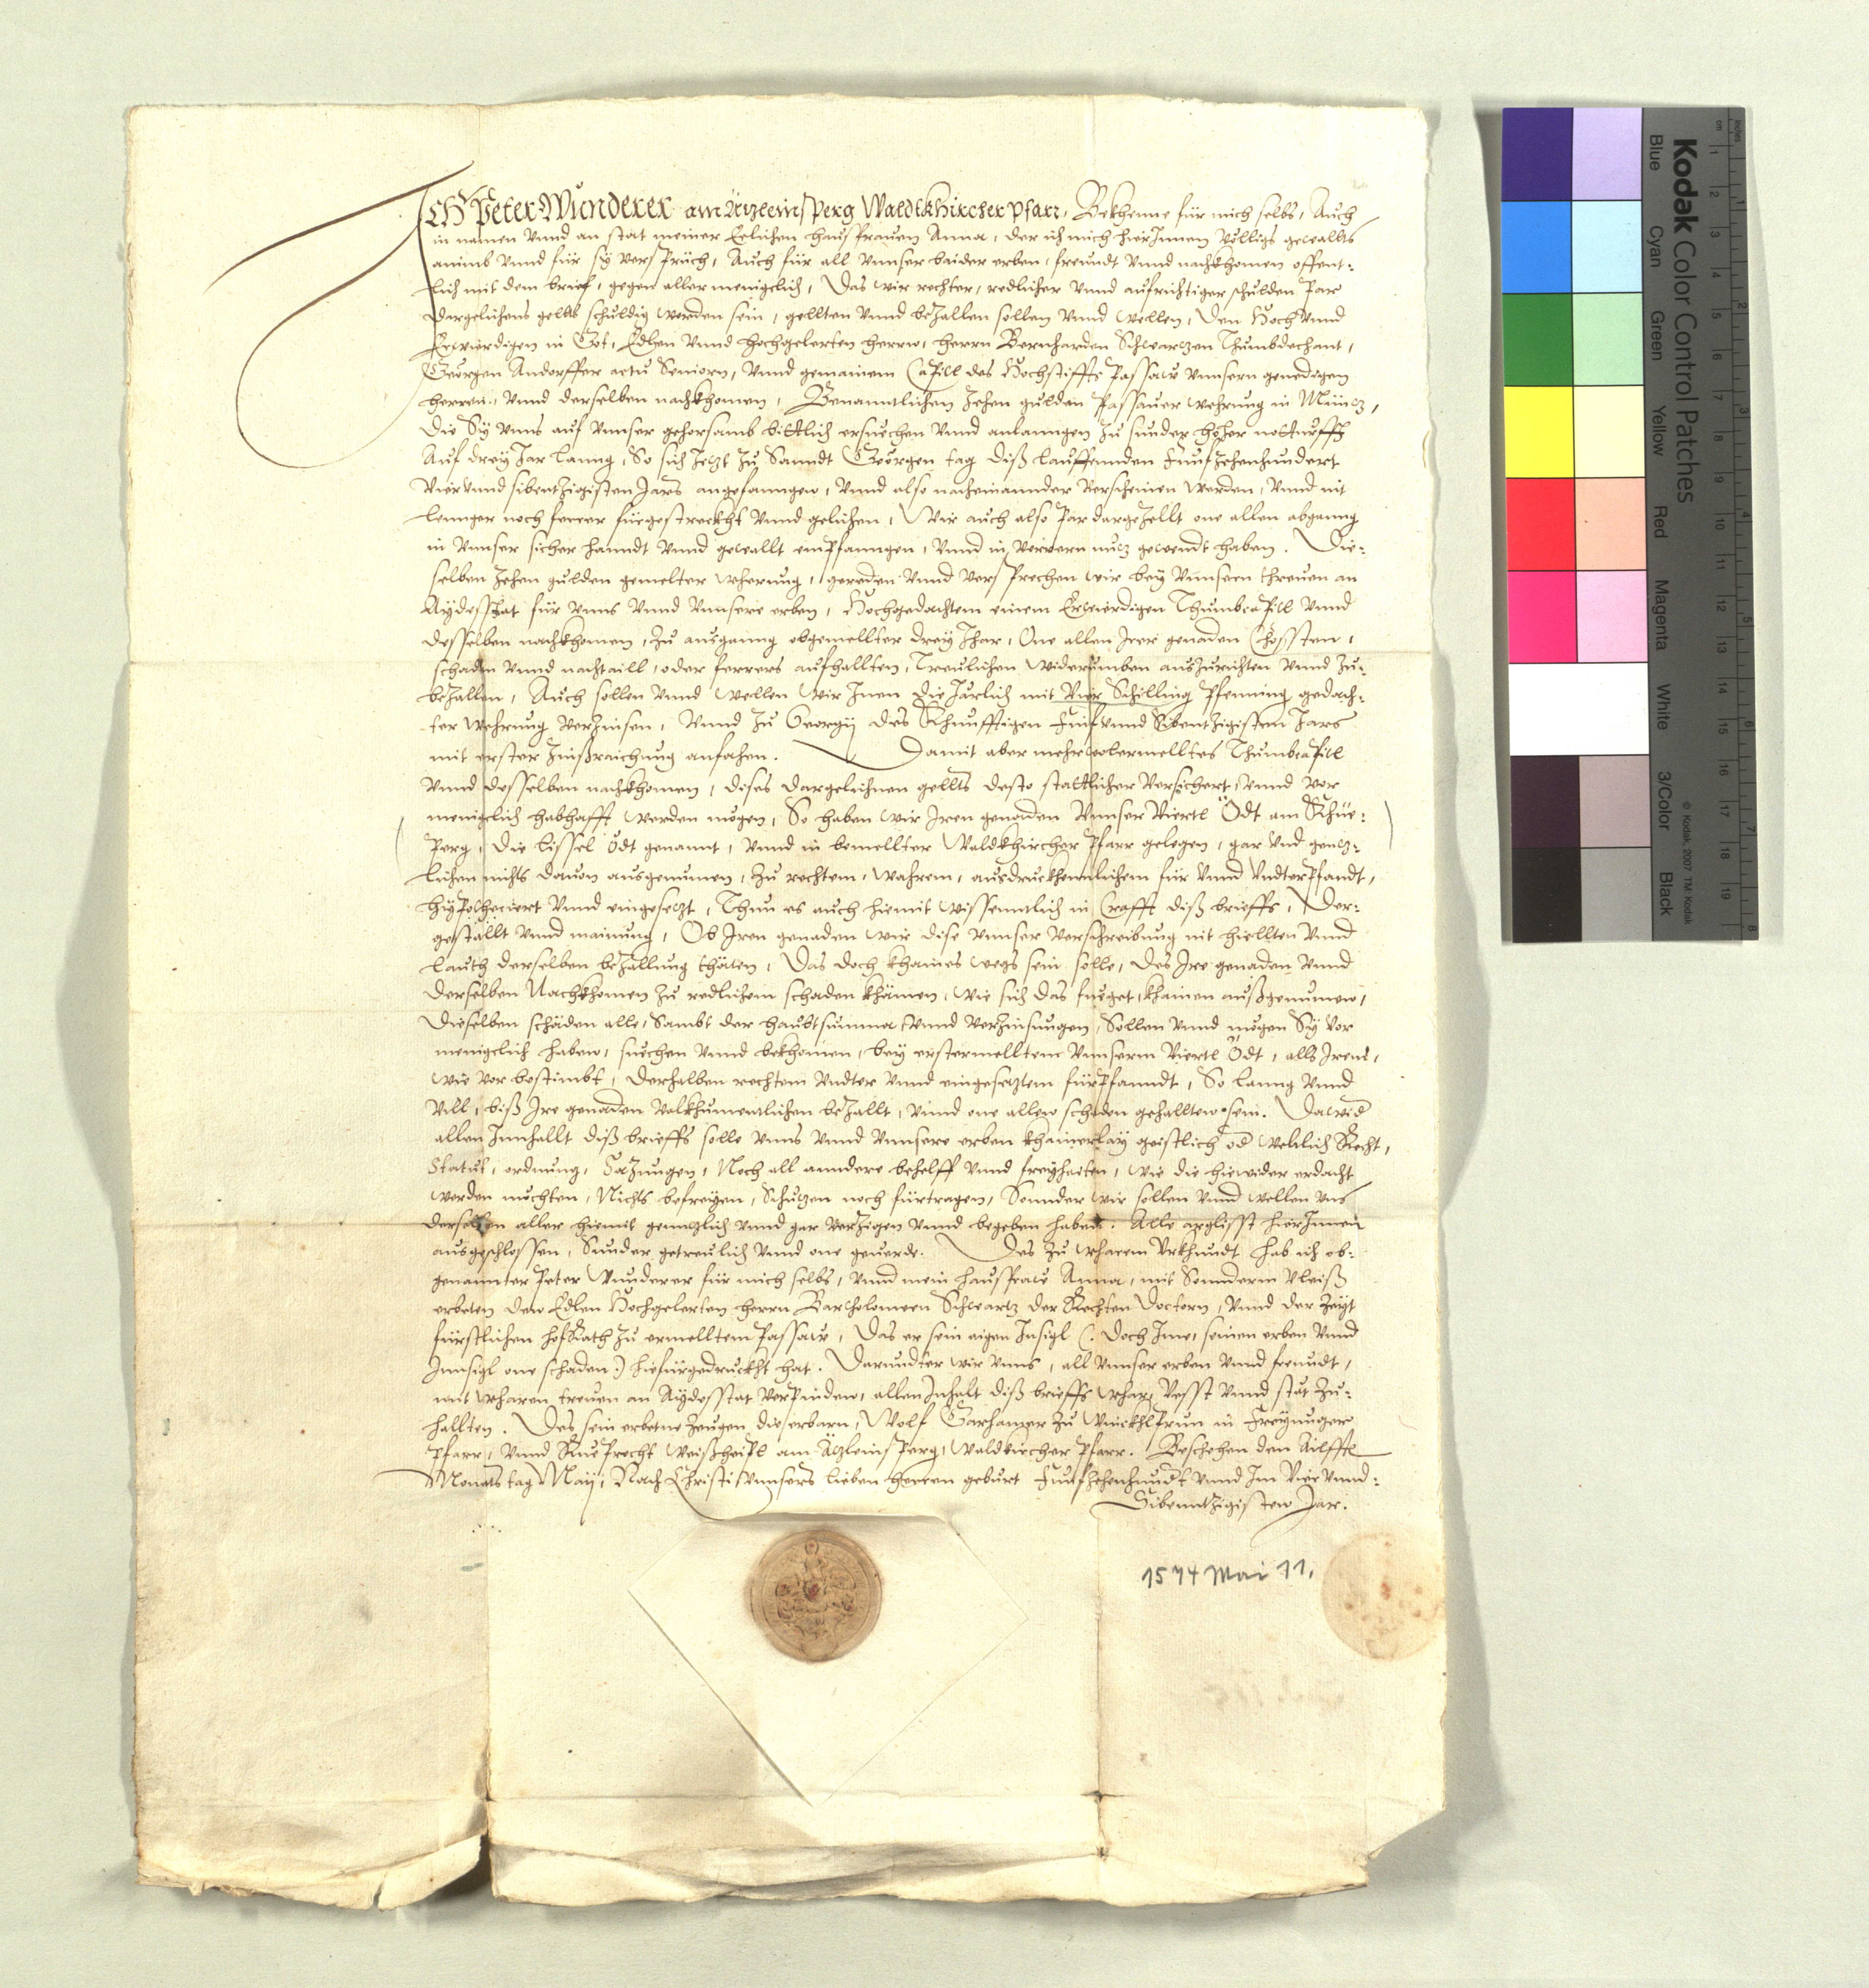 ICH Peter Wunderer am Äzleinsperg Waldtkhircher Pfarr, Bekhenne für mich selbs, Auch
in namen vnnd an stat meiner Eelichen hausfrauen Anna, der ich mich hierInnen völligs gewallts
animb vnnd für sy versprüch, Auch für all vnnser baider erben, freundt vnnd nachkhomen offent-
lich mit dem brief, gegen allermenigclich, Das wir rechter, redlicher vnnd aufrichtiger schulden par
dargelichens gellts schuldig worden sein, gellten vnnd bezallen sollen vnnd wellen, Den Hoch vnnd
Erwierdigen in Got, Edlen vnnd hochgelerten herrn, herrn Bernharden Schwartzen Thumbdechant,
Geörgen Andorffer actu Seniorn, vnnd gemainem Capitl des Hochstiffts Passaw vnnsern genedigen
herren, vnnd derselben nachkhomen, Benanntlichen zehen gulden Passauer wehrung in Müntz,
Die Sy vnns auf vnnser gehorsamb bittlich ersuechen vnnd anlanngen zu sunder hoher notturfft
Auf drey Jar lanng, So sich Jetzt zu Sanndt Geörgen tag diß lauffennden Funfzehenhundert
Viervnnd sibentzigisten Jars angefanngen, vnnd also nacheinannder verscheinen werden, vnnd nit
lennger noch ferrer fürgestreckht vnnd gelichen, Wir auch also par dargezellt one allen abganng
in vnnser sicher hanndt vnnd gewallt empfanngen, vnnd in vnnsern nutz gewendt haben. Die-
selben zehen gulden gemelter wherung, gereden vnnd versprechen wir bey vnnsern threuen an
Aydesstat für vnns vnnd vnnsere erben, Hochgedachtem einem Erwierdigen Thumbcapitl vnnd
desselben nachkhomen, zu ausganng obgemellter drey Jhar, One allen Irer genaden Chossten,
schaden vnnd nachtaill, oder ferrers aufhallten, Treulichen widerumben auszurichten vnnd zu-
bezallen, Auch sollen vnnd wellen wir Inen die Järlich mit Vier Schilling Pfenning gedach-
ter wehrung verzinsen, vnnd zu Georgy des Khunfftigen Funfvnnd Sibentzigisten Jars
mit erster zinßraichung anfahen. Damit aber mehrwolermelltes Thumbcapitl
vnnd desselben nachkhomen, dises dargelichnen gellts desto stattlicher versichert, vnnd vor
menigclich habhafft werden mögen, So haben wir Iren genaden vnnser Viertl Ödt am Schüe-
perg, die lissel ödt genannt, vnnd in bemellter Waldkhircher Pfarr gelegen, gar vnd gentz-
lichen nichts dauon ausgenumen, zu rechtem, wahrem, ausdruckhennlichem für vnnd vndterpfandt,
hypotheciert vnnd eingesetzt, Thun es auch hiemit wissenntlich in Crafft diß brieffs, Der-
gestallt vnnd mainung, Ob Iren genaden wir dise vnnser verschreibung nit hiellten vnnd
lauth derselben bezallung thäten, Das doch khaines wegs sein solle, des Ire genaden vnnd
derselben Nachkhomen zu redlichem schaden khämen, wie sich das fueget, khainen außgenumen,
Dieselben schäden alle, Sambt der haubtsumma, vnnd verzinsungen, Sollen vnnd mögen Sy vor
menigclich haben, suechen vnnd bekhomen, bey erstermelltem vnnserm Viertl Ödt, alls Irem,
wie vor bestimbt, derhalben rechtem vndter vnnd eingesetztem fürpfanndt, So lanng vnnd
vill, biß Ire genaden volkhumenlichen bezallt, vnnd one allen schaden gehallten sein. Dawid
allen Innhallt diß brieffs solle vnns vnnd vnnsere erben khainerlay geistlich od weltlich Recht,
Statut, ordnung, Satzungen, Noch all anndere behelff vnnd freyhaiten, wie die hiewider erdacht
werden möchten, Nichts befreyen, Schutzen noch fürtragen, Sonnder wir sollen vnnd wellen vns
derselben aller hiemit genntzlich vnnd gar verzigen vnnd begeben haben. Alle arglisst hierInnen
ausgeschlossen, Sunder getreulich vnnd one geuerde. Des zu wharem Vrkhundt hab ich ob-
genannter Peter Wunderer für mich selbs, vnnd mein hausfraw Anna, mit Sonnderm vleiß
erbeten den Edlen Hochgelerten herrn Bartholomeen Schwartz der Rechten Doctorn, vnnd der zeyt
fürstlichen hofRath zu ermelltem Passaw, Das er sein aigen Insigl (: doch Ime, seinen erben vnnd
Innsigl one schaden :) hiefürgedruckht hat. Darundter wir vnns, all vnnser erben vnnd freundt,
mit wharen treuen an Aydesstat verpinden, allen Inhalt diß brieffs whar, vesst vnnd stät zu-
hallten. Des sein erbetne zeugen die erbarn, Wolf Garhamer zu Winckhlprun in Freyunger
Pfarr, vnnd Rueprecht weißheipl am Äzleinsperg, waldkircher Pfarr. Beschehen den Ailfften
Monatstag Maij, Nach Christi vnnsers lieben herren geburt Funfzehenhundt vnnd Im Viervnnd-
Sibenntzigisten Jar.
1574 Mai 11.
Kodak Color Control Patches
© Kodak, 2007 TM: Kodak
Blue Cyan Green Yellow Red Magenta White 3/Color Black